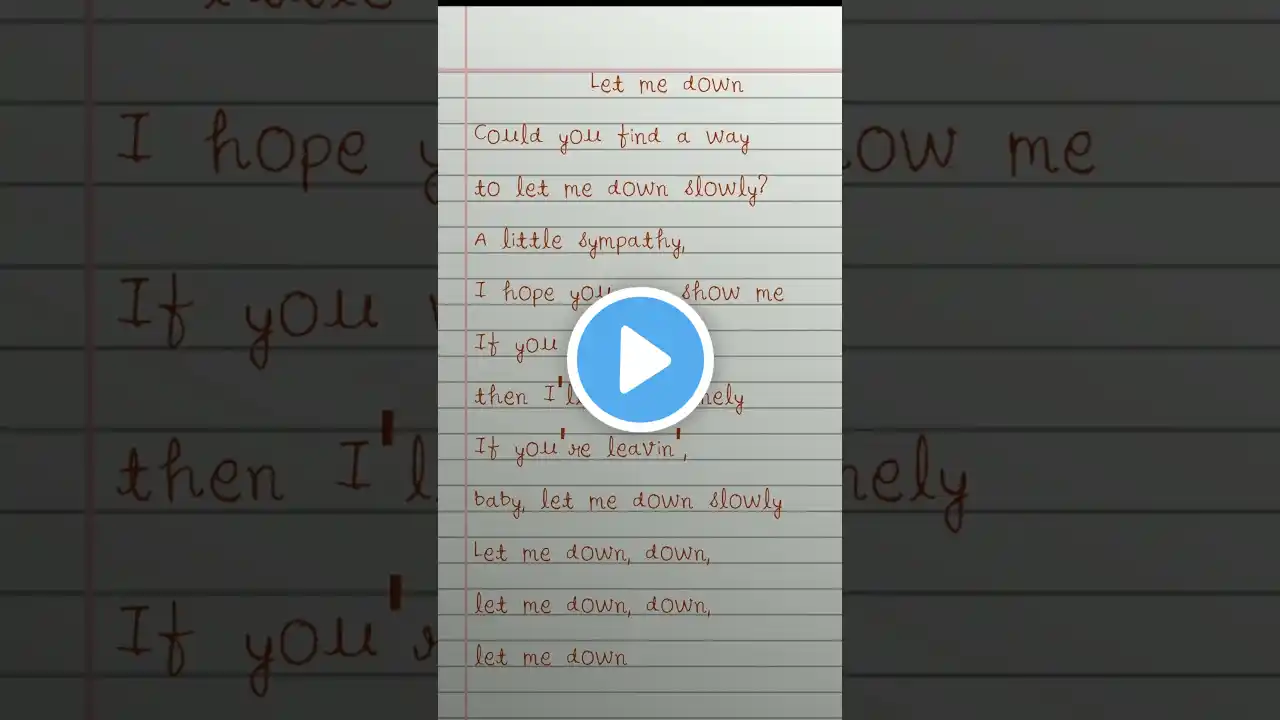 Let me down
Could you find a way
to let me down slowly?
A little sympathy,
I hope you show me
If you
then
If you're leavin',
baby, let me down slowly
Let me down, down,
let me down, down,
let me down